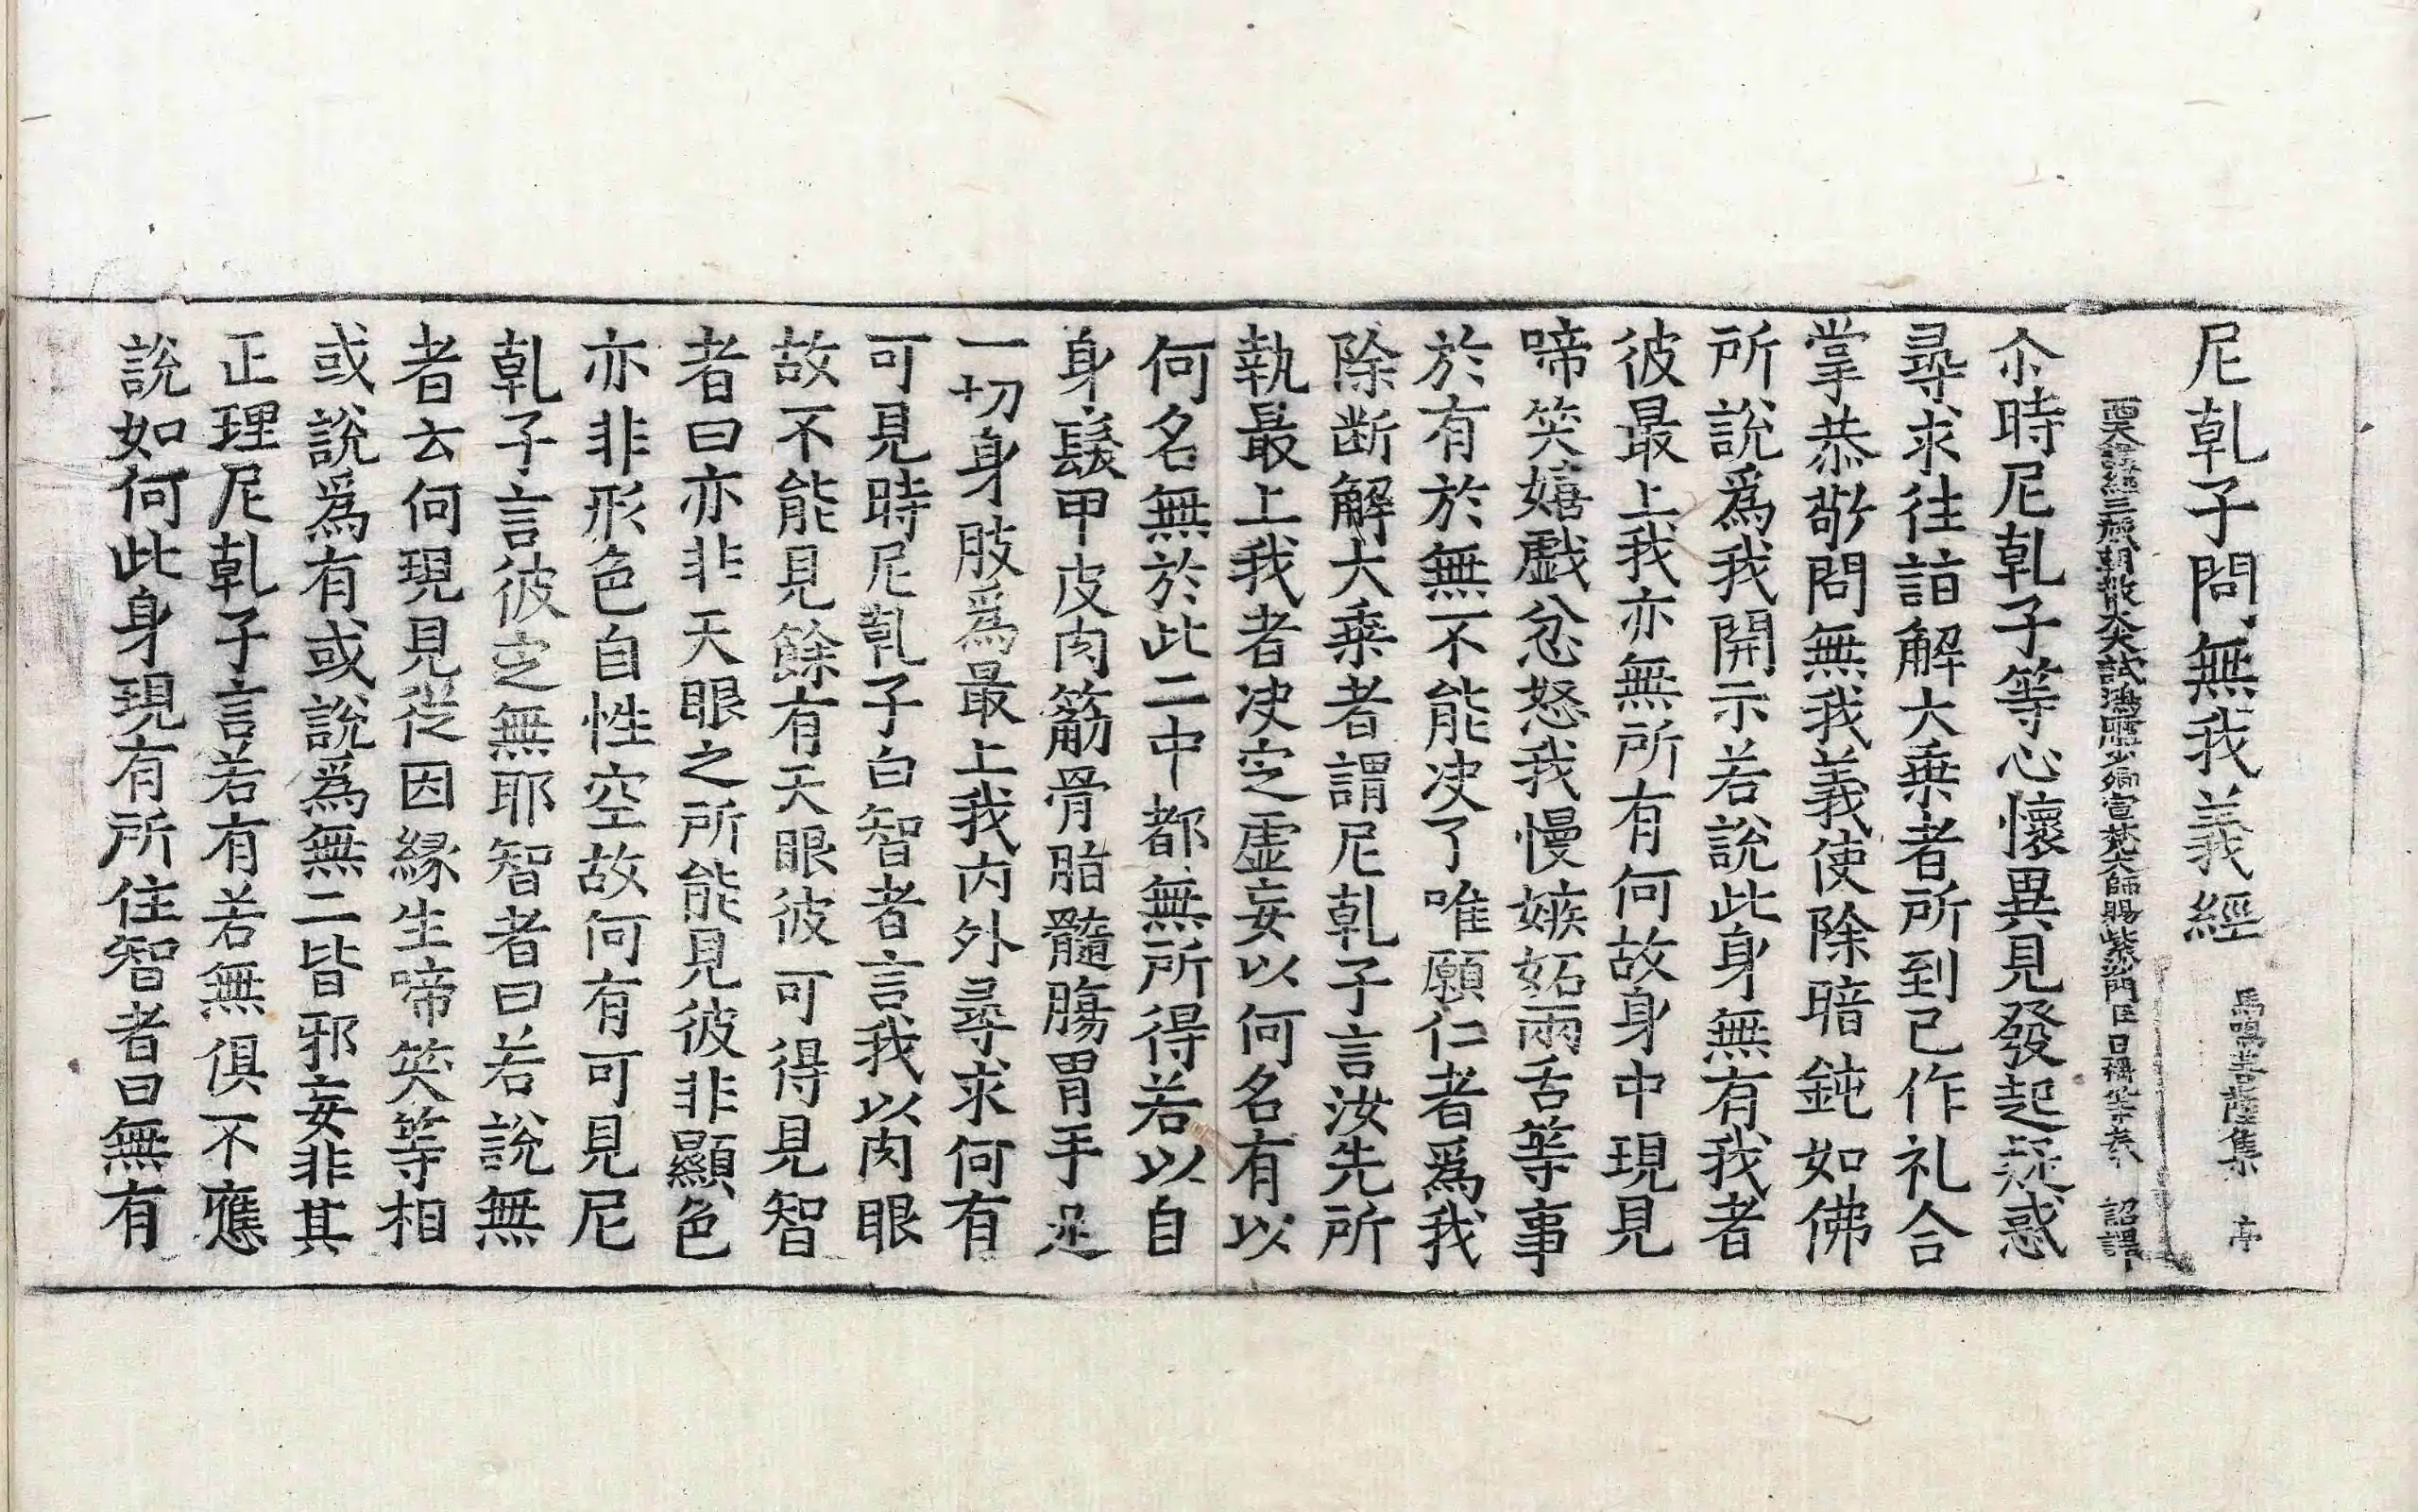 尼乹子問無我義經 馬鳴菩薩集 亭
西天譯經三藏朝散大夫試鴻臚少卿宣梵大師賜紫沙門臣日稱等奉 詔譯
尒時尼乹子等心懷異見發起疑惑
尋求徃詣解大乗者所到已作礼合
掌恭敬問無我義使除暗鈍如佛
所說爲我開示若說此身無有我者
彼最上我亦無所有何故身中現見
啼笑嬉戱忿怒我慢嫉妬兩舌等事
於有於無不能决了唯願仁者爲我
除断解大乗者謂尼乹子言汝先所
執最上我者决㝎虚妄以何名有以
何名無於此二中都無所得若以自
身髮甲皮肉觔骨脂髓膓胃手足
一切身肢爲最上我内外尋求何有
可見時尼乹子白智者言我以肉眼
故不能見餘有天眼彼可得見智
者曰亦非天眼之所能見彼非顯色
亦非形色自性空故何有可見尼
乹子言彼㝎無耶智者曰若說無
者云何現見從因縁生啼笑等相
或說爲有或說爲無二皆邪妄非其
正理尼乹子言若有若無俱不應
說如何此身現有所住智者曰無有